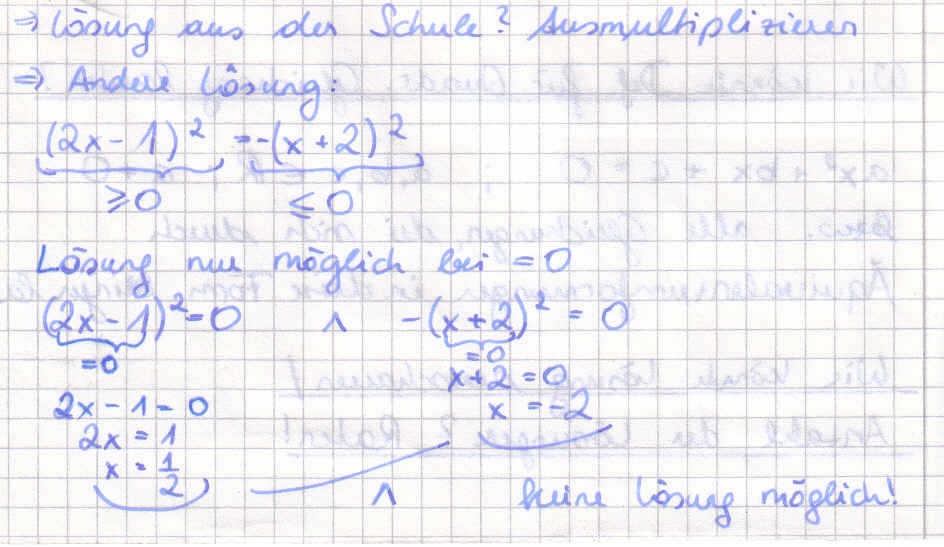 ⇒ Lösung aus der Schule? Ausmultiplizieren
⇒ Andere Lösung:
(2x - 1)² = -(x + 2)²
≥0 ≤0
Lösung nur möglich bei = 0
(2x - 1)² = 0 ∧ -(x + 2)² = 0
=0 =0
x + 2 = 0
2x - 1 = 0 x = -2
2x = 1
x = 1/2
∧ keine Lösung möglich!